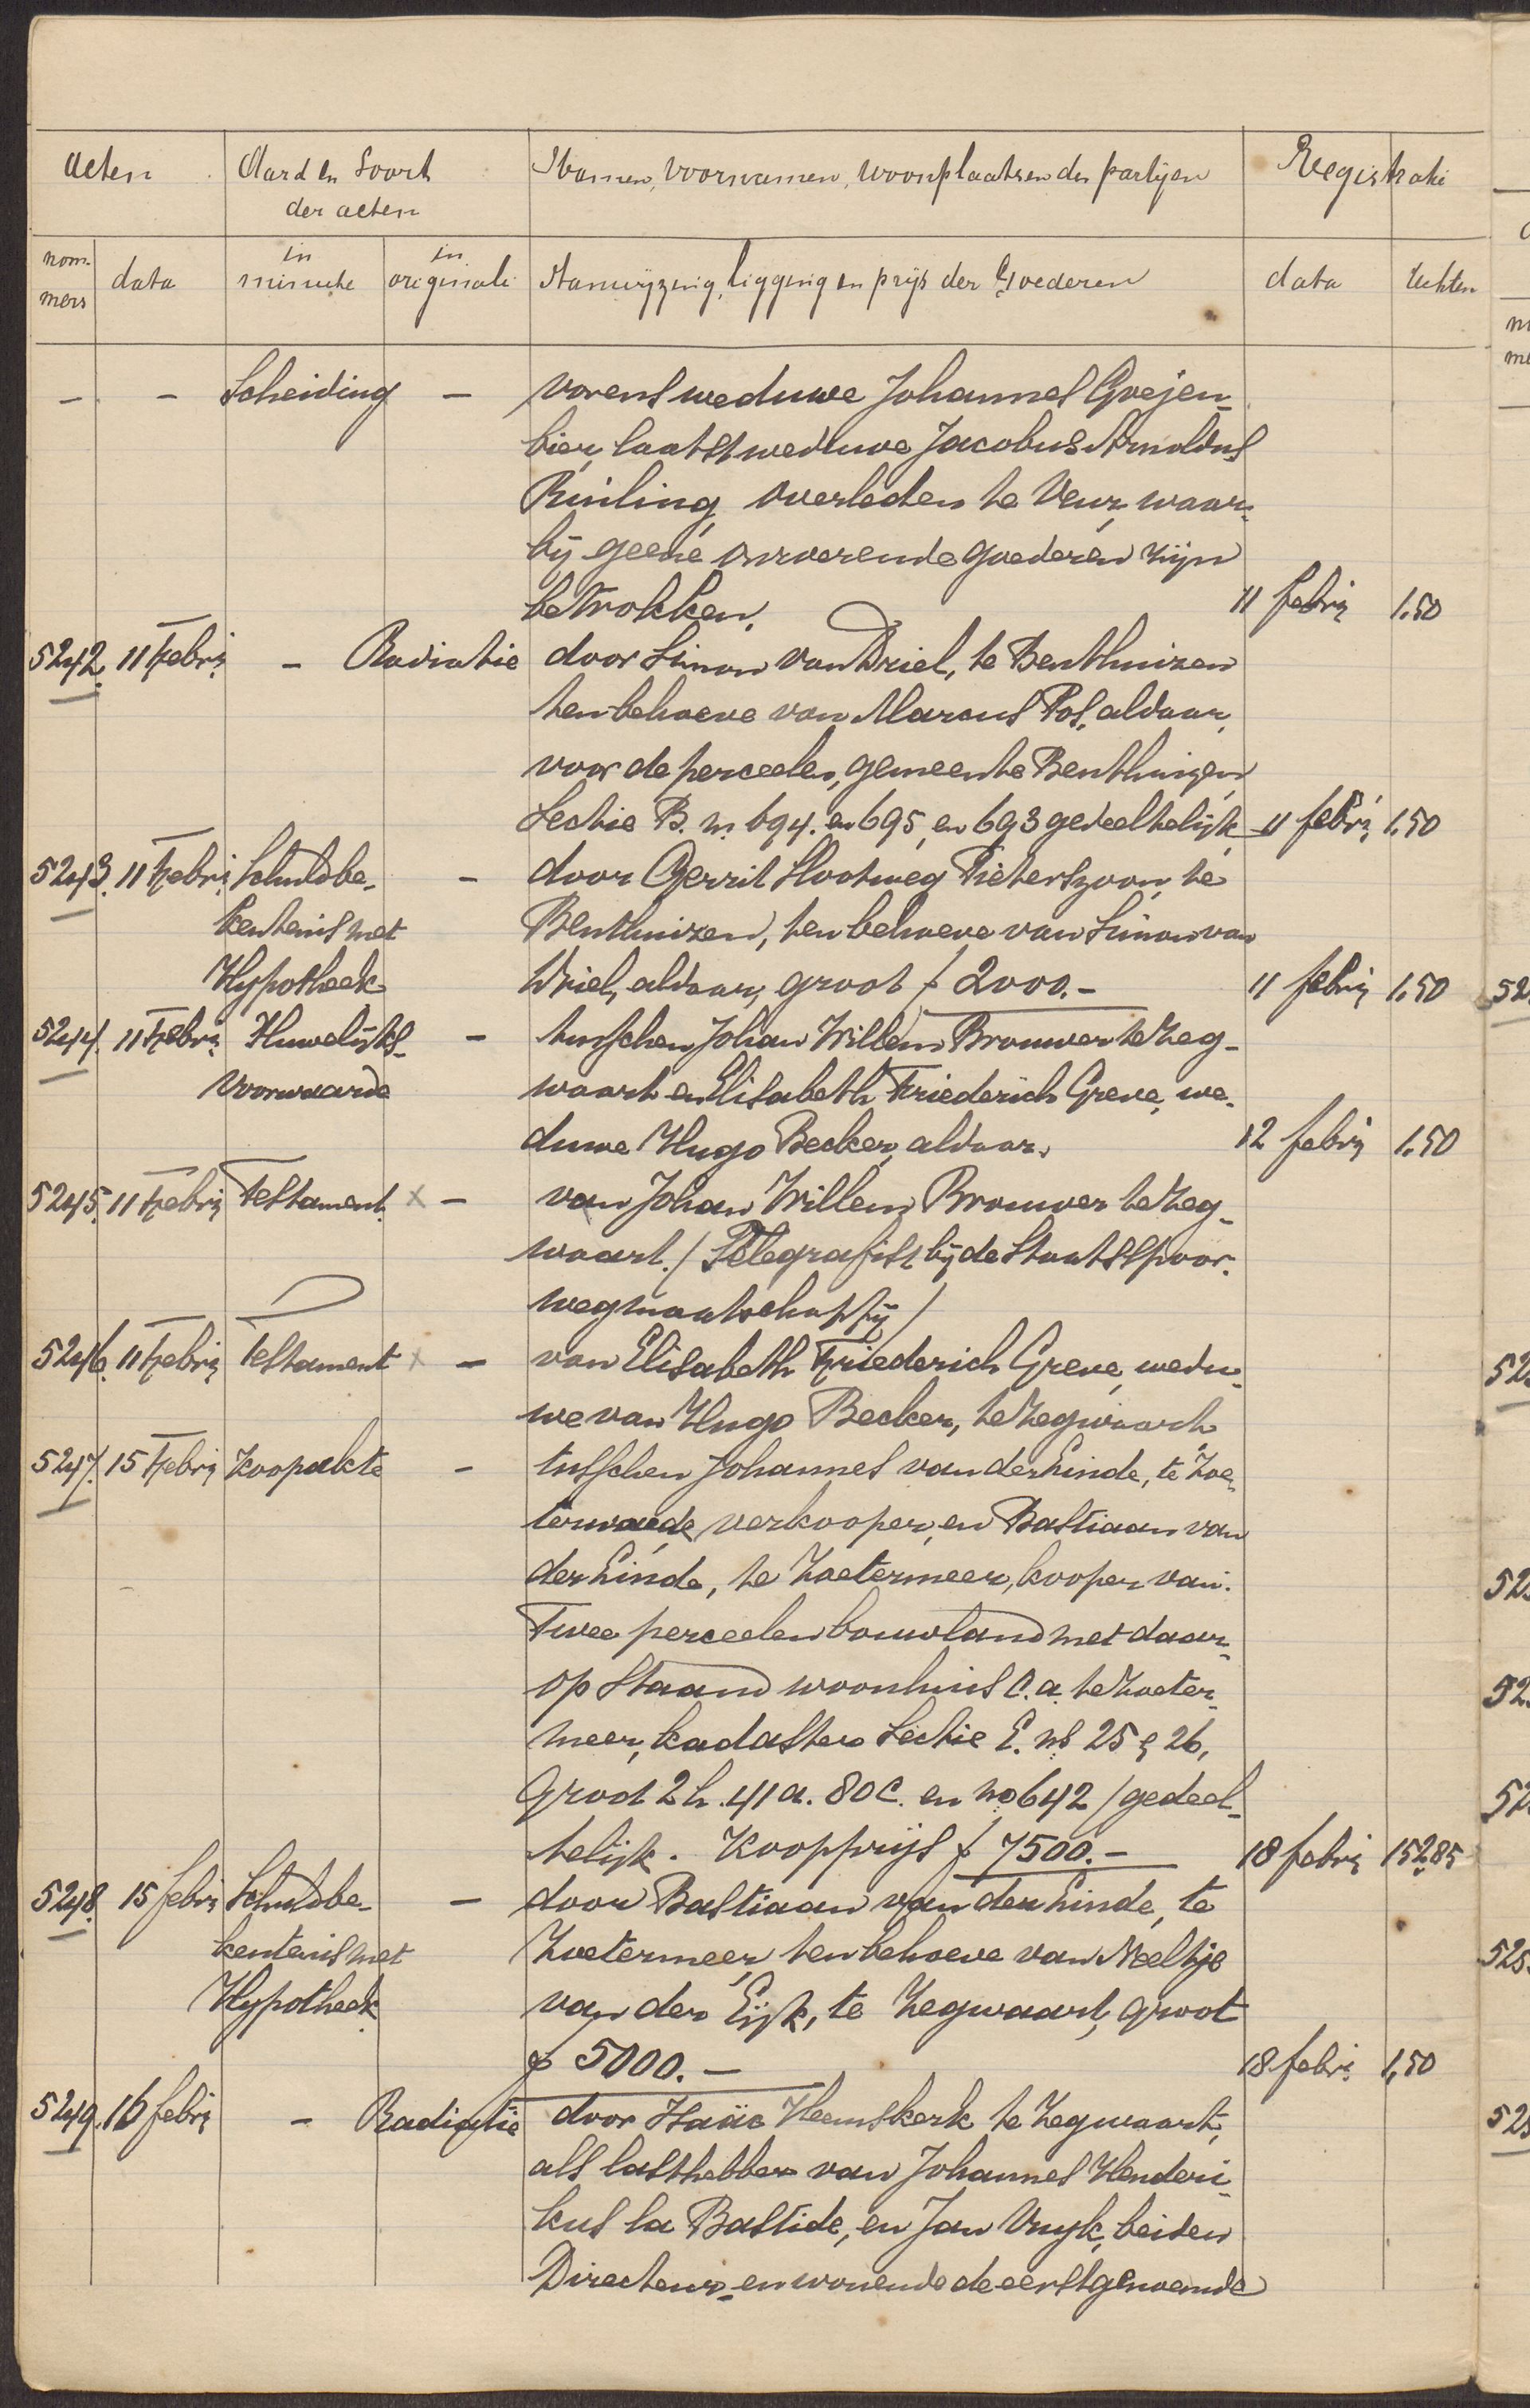 Acten Aard en Soort Namen, voornamen, woonplaatsen der partijen Registratie
der acten
nom- data in in Aanwijzing, ligging en prijs der Goederen data rechten
mers minute originali
- - Scheiding - vorens weduwe Johannes Goejen-
bier, laatst weduwe Jacobus Arnoldus
Ruiling, overleden te Veur, waar-
bij geene onroerende goederen zijn
betrokken. 11 febri 1.50
5242. 11 Febri. - Radiatie door Simon van Driel, te Benthuizen
ten behoeve van Marcus Pos, aldaar,
voor de perceelen, gemeente Benthuizen
Sectie B. nr. 694. en 695, en 693 gedeeltelijk 11 febri 1.50
5243. 11 Febri Schuldbe- - door Gerrit Slootweg Pieterszoon, te
kentenis met Benthuizen, ten behoeve van Simon van
Hypotheek Driel, aldaar, groot f 2000.- 11 febri 1.50
5244. 11 Febri. Huwelijks- - tusschen Johan Willem Brouwer te Zeg-
voorwaarde waart en Elisabeth Friederich Greve, we-
duwe Hugo Becker, aldaar. 12 febri 1.50
5245. 11 Febri Testament. x - van Johan Willem Brouwer te Zeg-
waart. / Telegrafist bij de Staatsspoor-
wegmaatschappij /
5246. 11 Febri Testament x - van Elisabeth Friederich Greve, wedu-
we van Hugo Becker, te Zegwaart
5247. 15 Febri Koopakte - tusschen Johannes van der Einde, te Zoe-
terwoude, verkooper, en Bastiaan van
der Einde, te Zoetermeer, kooper van.
Twee perceelen bouwland met daar-
op staand woonhuis c.a. te Zoeter-
meer, kadaster Sectie E. ns 25 & 26,
Groot 2 h. 41 a. 80 c. en no 642 / gedeel-
telijk. Koopprijs f 7500.- 18 febri 152.85
5248. 15 febri Schuldbe- - door Bastiaan van der Einde, te
kentenis met Zoetermeer, ten behoeve van Neeltje
Hypotheek van der Eijk, te Zegwaart, groot
f 5000.- 18 febri. 1,50
5249. 16 febri - Radiatie door Isaäc Heemskerk te Zegwaart,
als lasthebber van Johannes Henderi-
kus la Bastide, en Jan Vuyk, beiden
Directeur, en wonende de eerstgenoemde